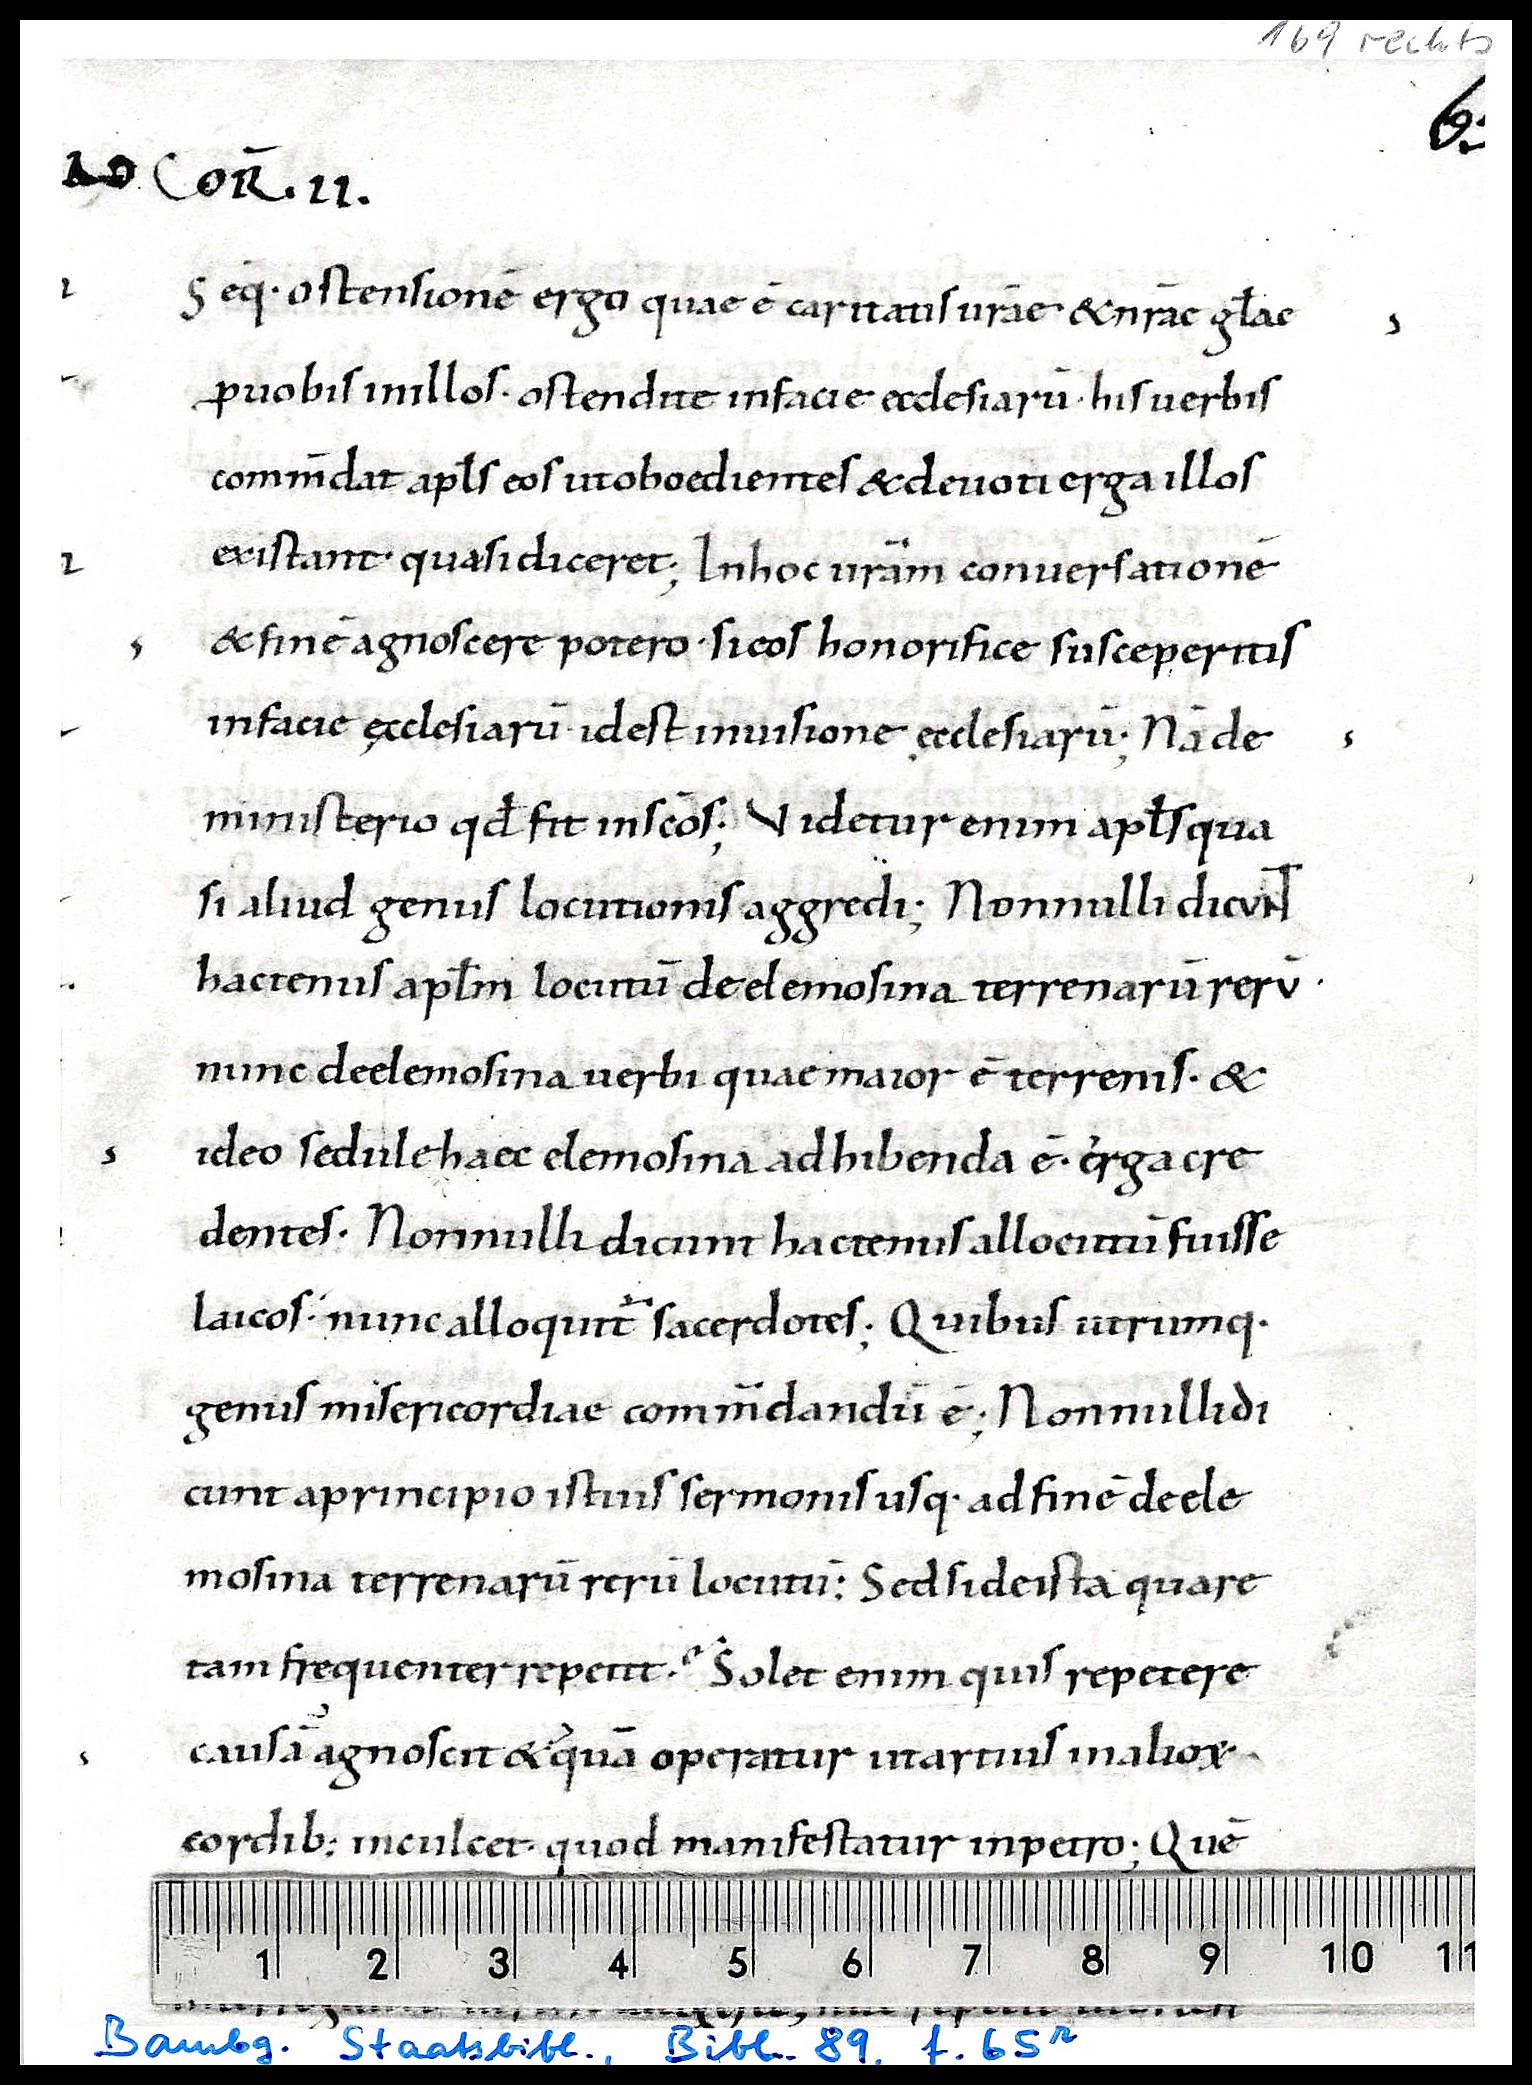 169 rechts
6
AD COR̄. II.
Seq̄· ostensionē ergo quae ē caritatis ur̄ae & nr̄ae gl̄ae
ꝓ uobis in illos· ostendite in facie ecclesiarū· his uerbis
comm̄dat apl̄s eos ut oboedientes & deuoti erga illos
existant· quasi diceret; In hoc ur̄am conuersationē
& finē agnoscere potero· si eos honorifice susceperitis
in facie ęcclesiarū· id est in uisione ęcclesiarū; Nā de
ministerio qđ fit in sc̄os; Videtur enim apl̄s qua
si aliud genus locutionis aggredi; Nonnulli dicunt
hactenus apl̄m locutū de elemosina terrenarū rerū·
nunc de elemosina uerbi quae maior ē terrenis· &
ideo sedule haec elemosina adhibenda ē· erga cre
dentes· Nonnulli dicunt hactenus allocutū fuisse
laicos· nunc alloquit̄ sacerdotes; Quibus utrumq·
genus misericordiae comm̄dandū ē; Nonnulli di
cunt a principio istius sermonis usq· ad finē de ele
mosina terrenarū rerū locutū; Sed si de ista quare
tam frequenter repetit· Solet enim quis repetere
causā agnoscit & quā operatur ut artius in alioꝝ
cordib; inculcet· quod manifestatur in petro; Quē
1 2 3 4 5 6 7 8 9 10 11
Bambg. Staatsbibl., Bibl. 89, f. 65r